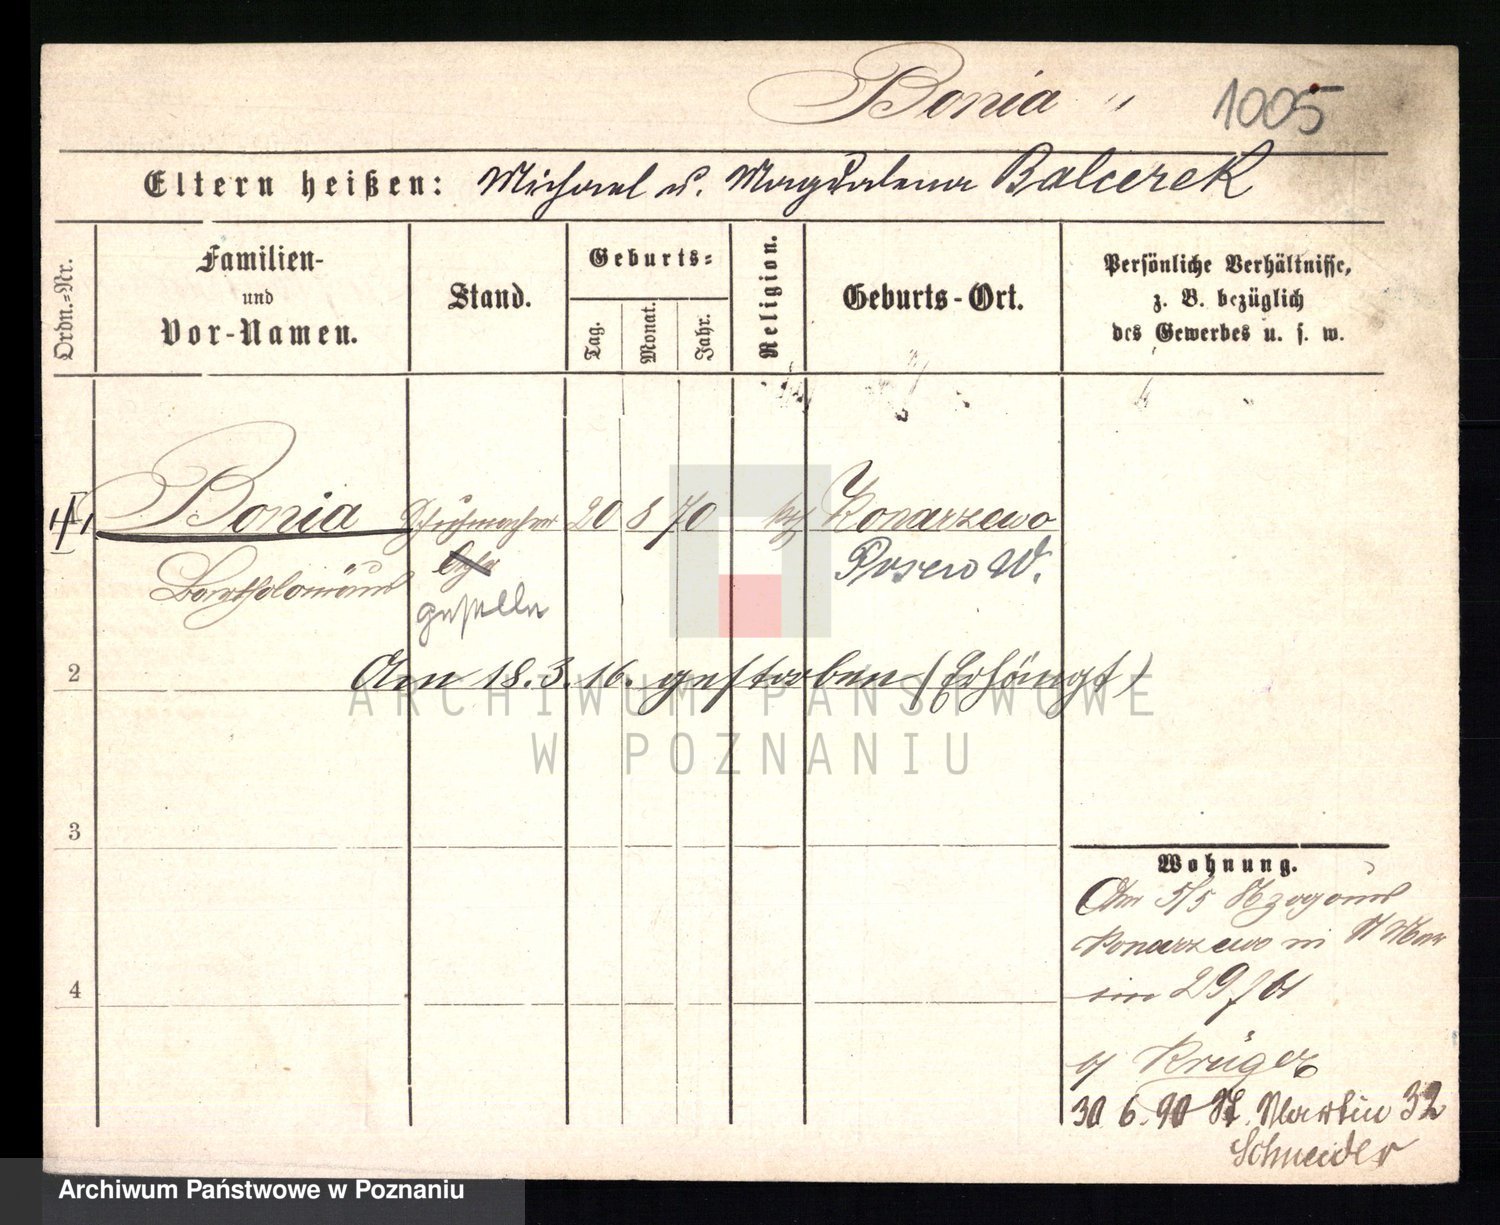 Bonia 1005
Eltern heißen: Michael u. Magdalena Balcerek
Ordn.-Nr.
Familien-
und
Vor-Namen.
Stand.
Geburts-
Tag. Monat. Jahr.
Religion.
Geburts-Ort.
Persönliche Verhältnisse,
z. B. bezüglich
des Gewerbes u. s. w.
1 Bonia Schuhmacher 20 8 70 k Konarzewo
Bartholomäus geselle Posen W.
2 Am 18.3.16. gestorben (Erhängt)
3
4
Wohnung.
Am 5/5
Konarzewo in St Mar
tin 29
b/ Krüger
30 6. 90 St. Martin 32
Schneider
ARCHIWUM PAŃSTWOWE
W POZNANIU
Archiwum Państwowe w Poznaniu